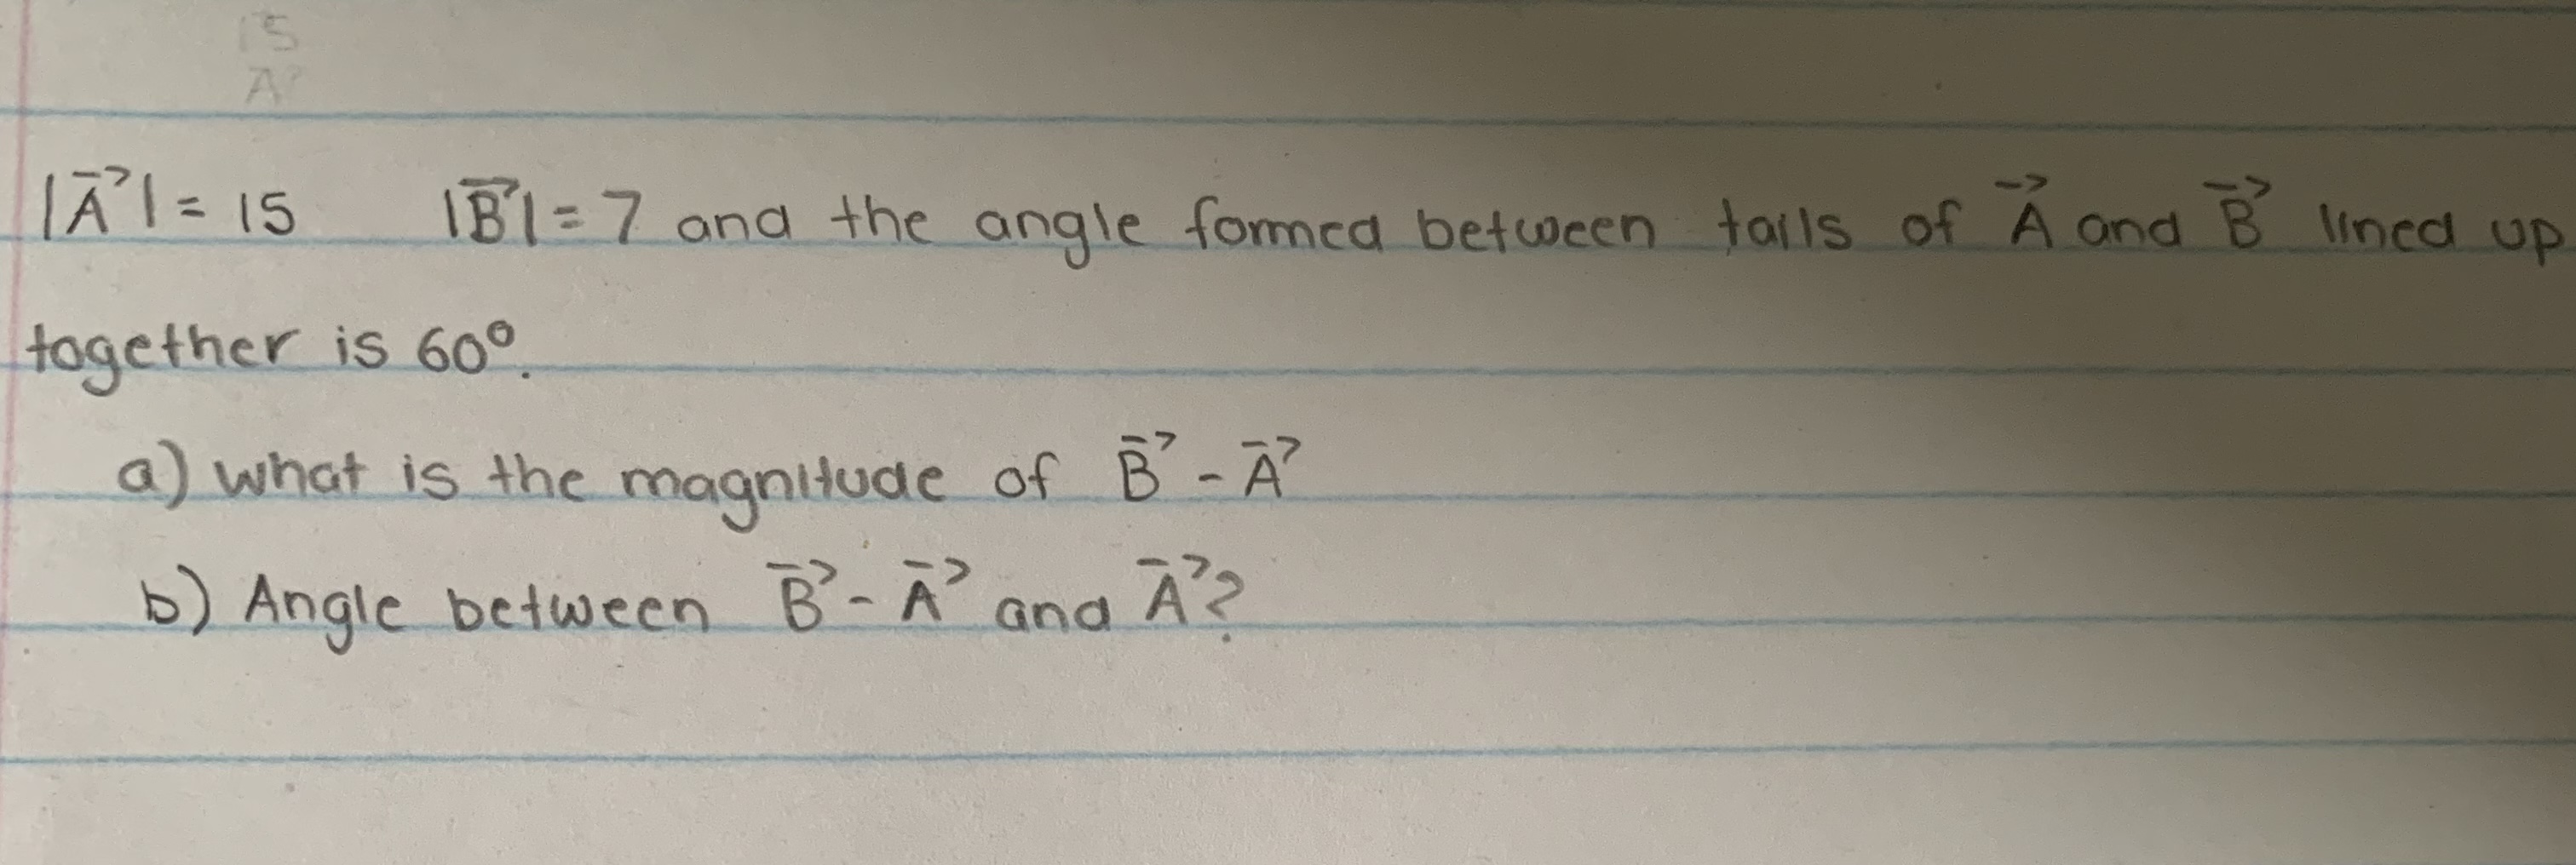 15
A⃗
|A⃗| = 15 |B⃗| = 7 and the angle formed between tails of A⃗ and B⃗ lined up
together is 60°.
a) what is the magnitude of B⃗ - A⃗
b) Angle between B⃗ - A⃗ and A⃗?